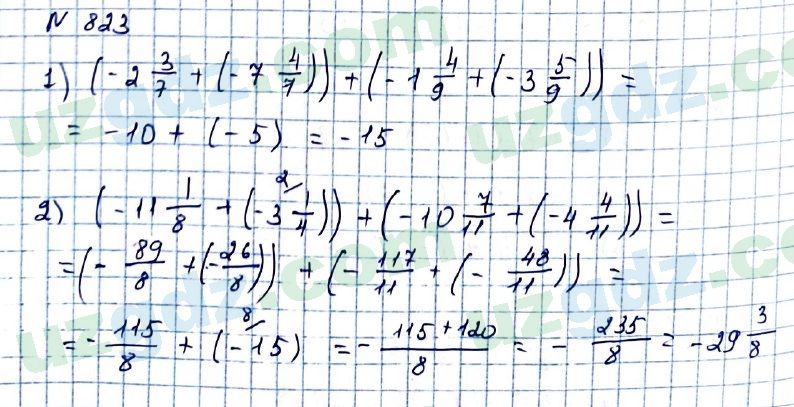 № 823
1) (-2 3/7 + (-7 4/7)) + (-1 4/9 + (-3 5/9)) =
= -10 + (-5) = -15
2) (-11 1/8 + (-3 1/4 ²⁄)) + (-10 7/11 + (-4 4/11)) =
= (- 89/8 + (-26/8)) + (- 117/11 + (- 48/11)) =
= - 115/8 + (-15 ⁸⁄) = - 115 + 120/8 = - 235/8 = -29 3/8
uzgdz.com
uzgdz.com
uzgdz.com
uzgdz.com